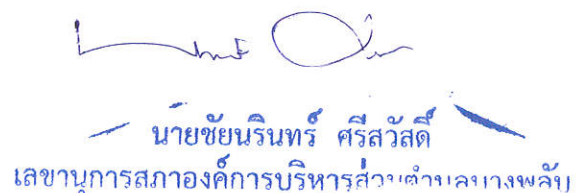 นายชัยนรินทร์ ศรีสวัสดิ์
เลขานุการสภาองค์การบริหารส่วนตำบลบางพลับ